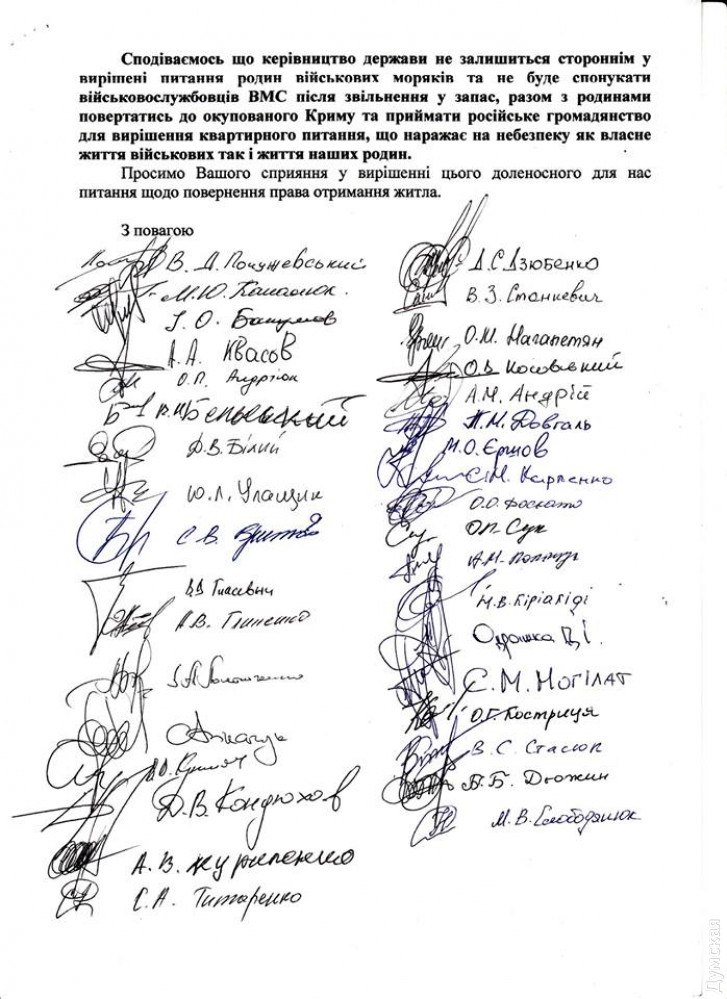 Сподіваємось що керівництво держави не залишиться стороннім у
вирішені питання родин військових моряків та не буде спонукати
військовослужбовців ВМС після звільнення у запас, разом з родинами
повертатись до окупованого Криму та приймати російське громадянство
для вирішення квартирного питання, що наражає на небезпеку як власне
життя військових так і життя наших родин.
Просимо Вашого сприяння у вирішенні цього доленосного для нас
питання щодо повернення права отримання житла.
З повагою
В. Д.
М.Ю.
І. О.
А. А. Квасов
О.П. Андріюк
Д.В. Білий
Ю.Л. Улащик
С. В.
В.В.
А.В. Глиненко
Д.В. Кондюхов
А.В. Журипенко
С.А. Титаренко
Д.С. Дзюбенко
В. З. Станкевич
О.М. Нагапетян
О.В. Косовський
А.М. Андрій
П.М. Довгаль
М.О. Єршов
Є.М. Карпенко
О.О.
О.П. Сук
А.М.
Н.В. Кіріакіді
Одрашка Д.І.
Є. М. Могілат
О.Г. Костриця
В. С. Стасюк
В.Б. Дюжин
М. В. Слободянюк
Думская